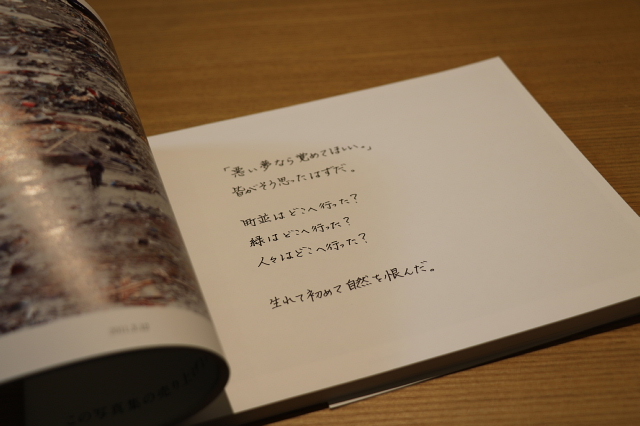 「悪い夢なら覚めてほしい。」
皆がそう思ったはずだ。
町並はどこへ行った?
緑はどこへ行った?
人々はどこへ行った?
生れて初めて自然を恨んだ。
この写真集の売り上げ